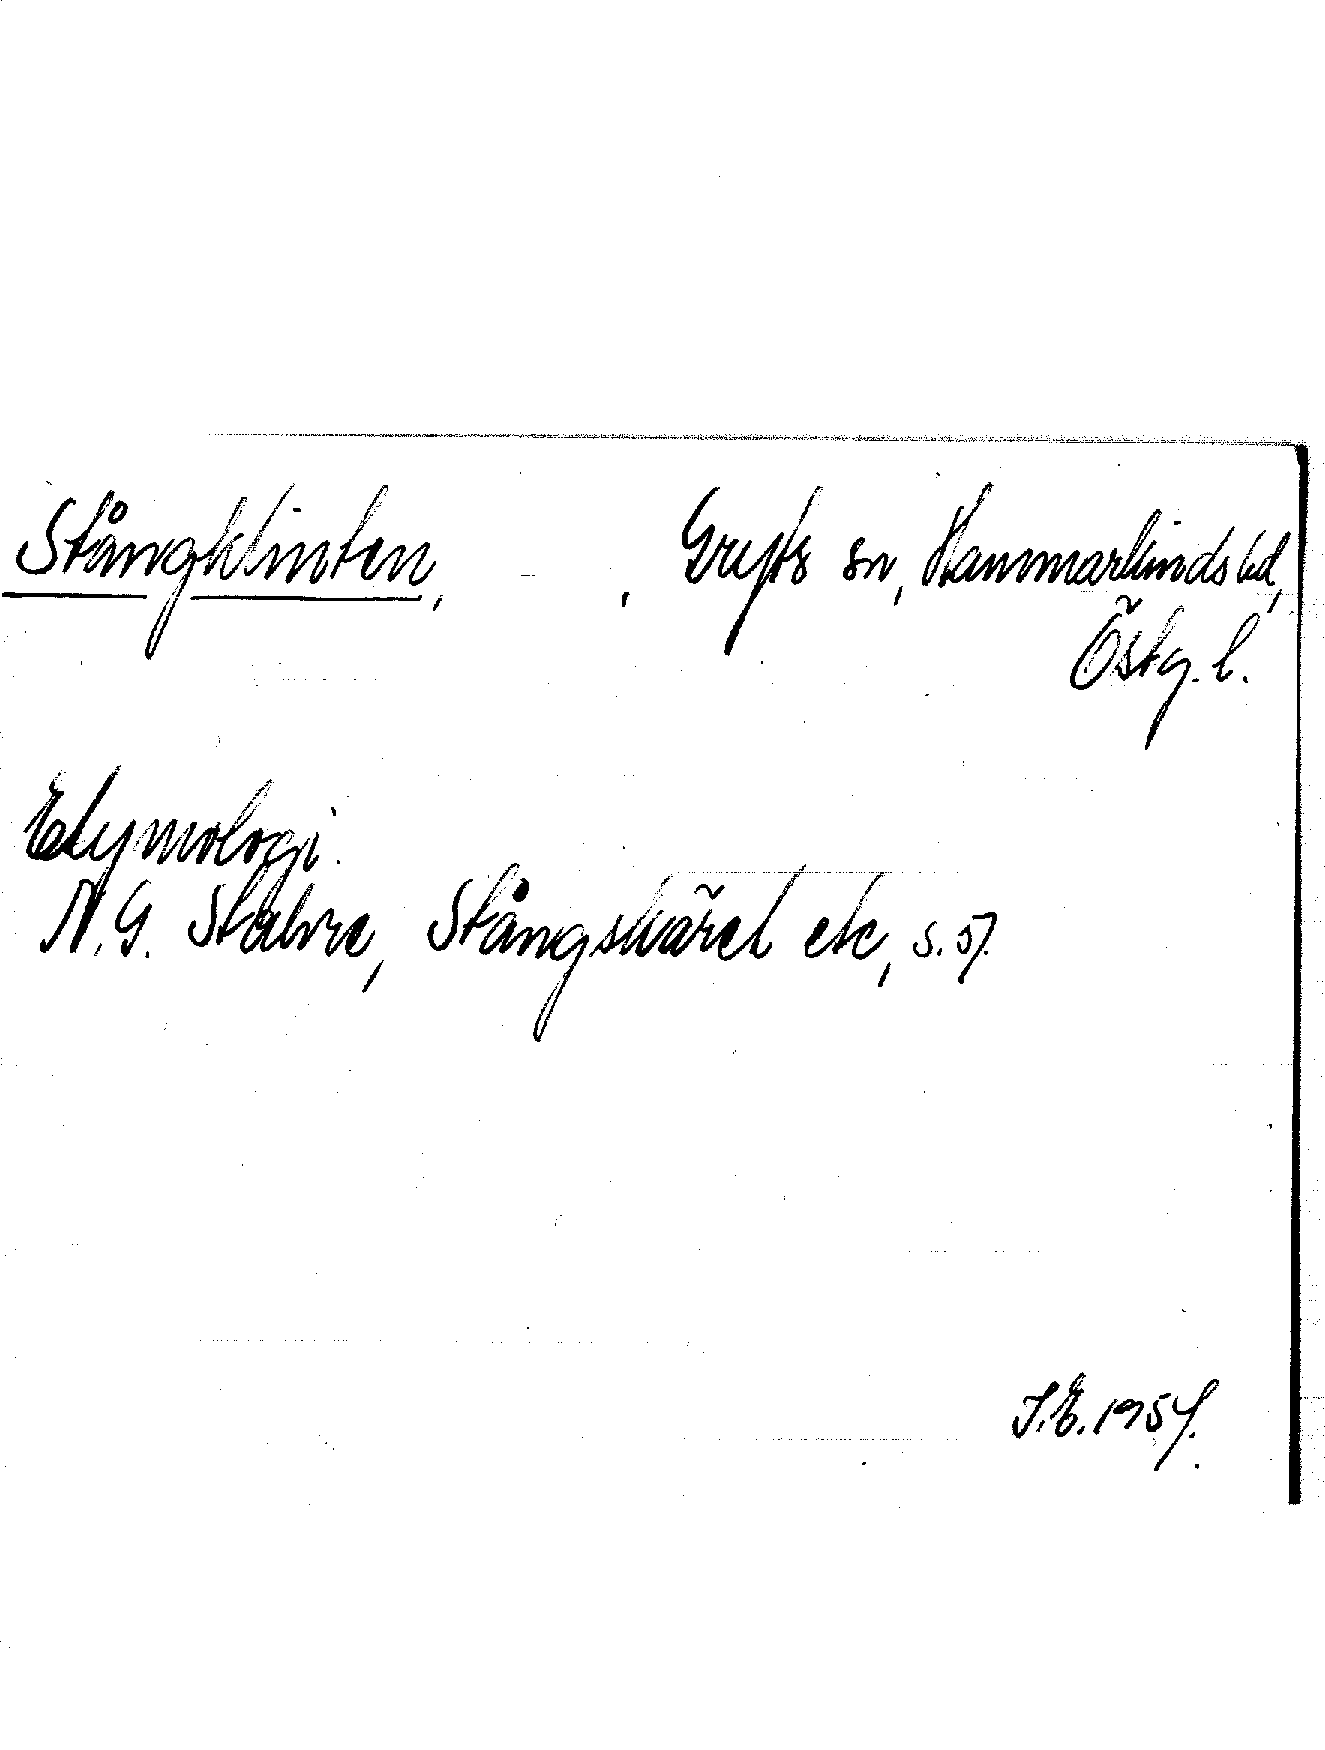 Stångklinten, - , Gryts sn, Hammarkinds hd,
Östg. l.
Etymologi.
N.G. Stahre, Stångskäret etc, s. 57.
S.E. 1957.